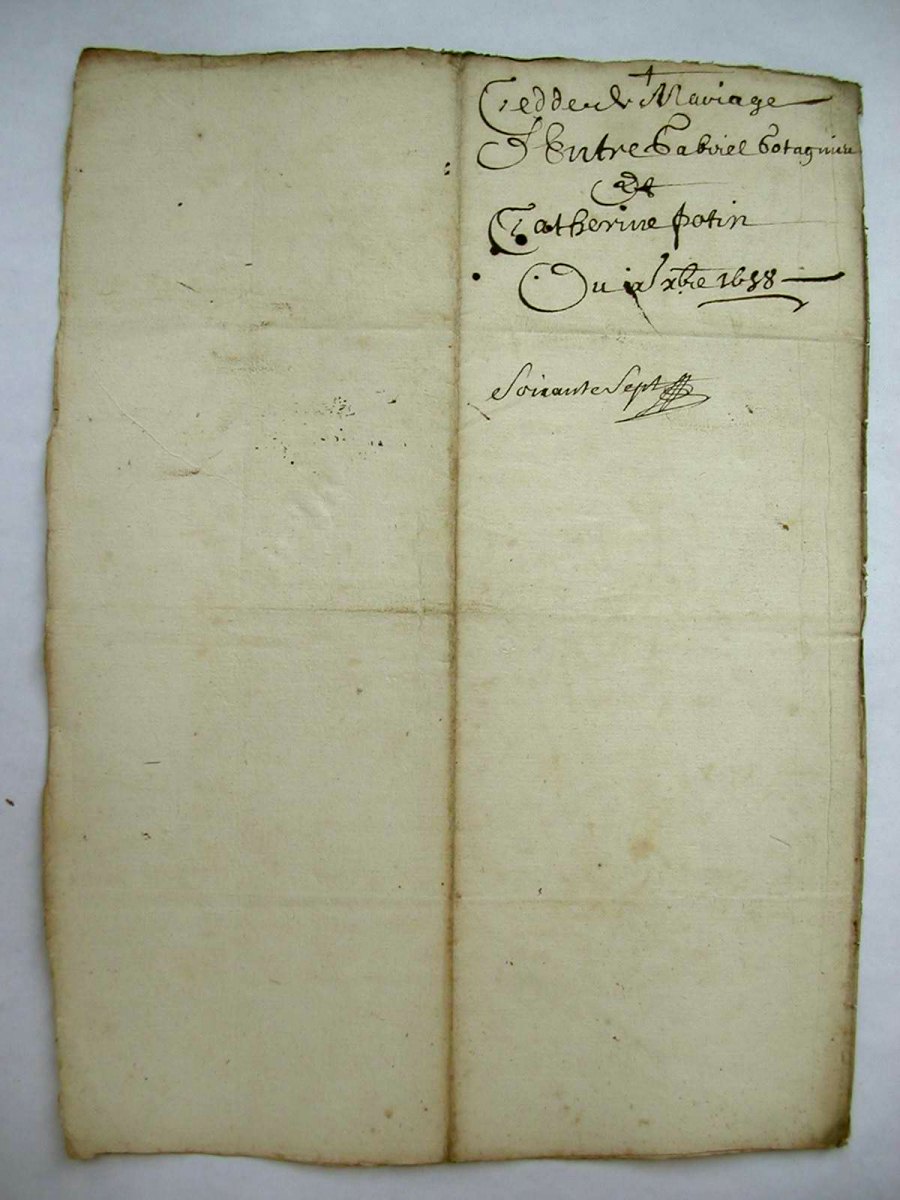 Cedde de Mariage
D'Entre Gabriel Gotagnieu
Et
Catherine potin
Du xbre 1658
Soixante Sept